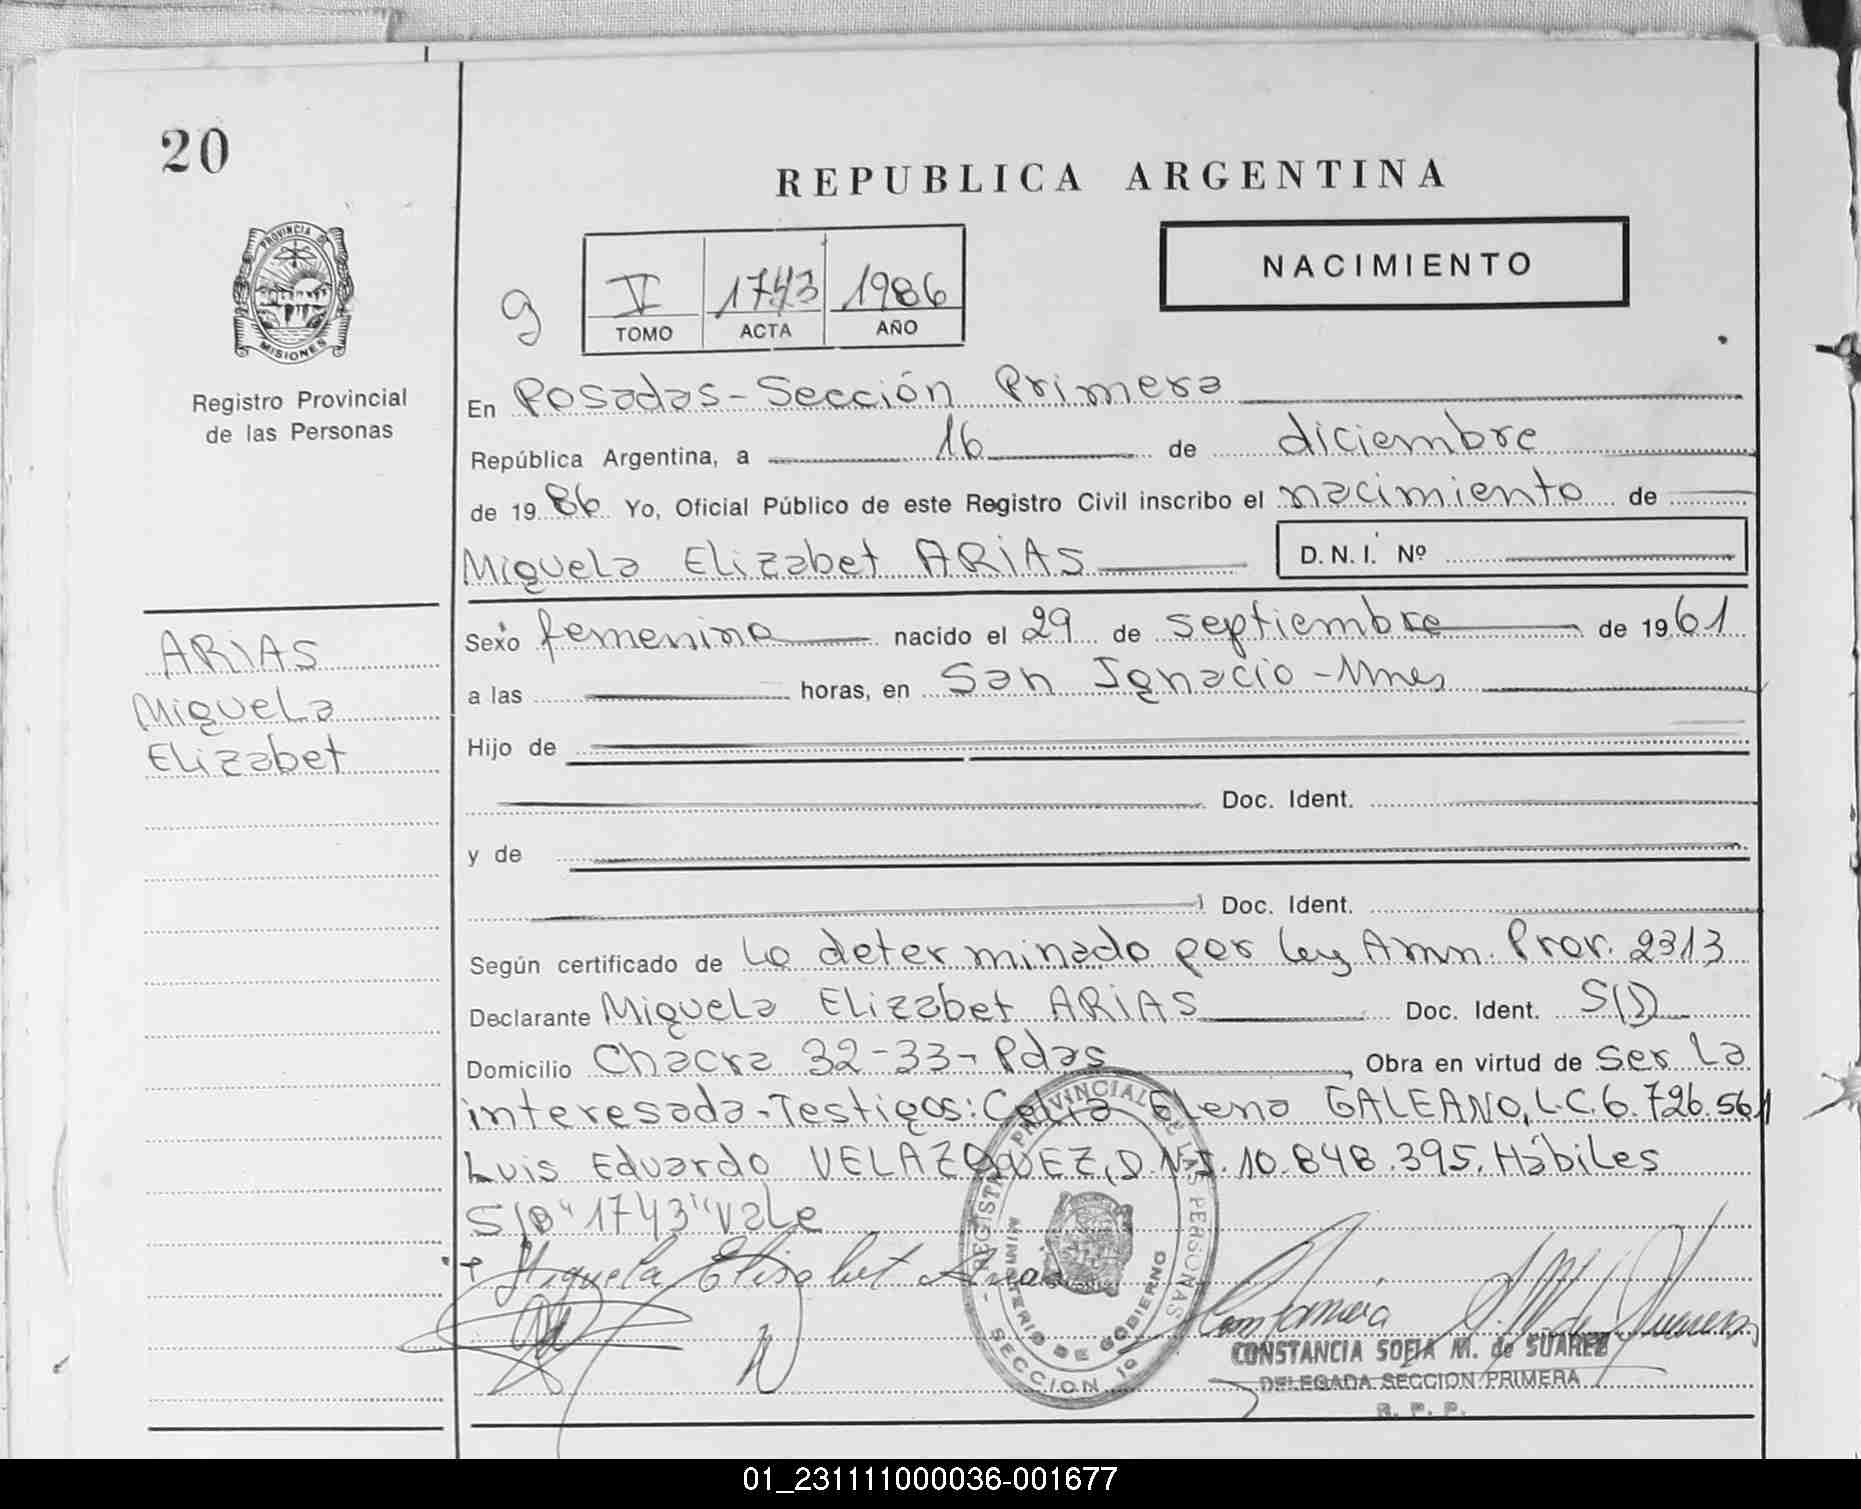 20
REPUBLICA ARGENTINA
PROVINCIA DE
MISIONES
Registro Provincial
de las Personas
NACIMIENTO
g
V 1743 1986
TOMO ACTA AÑO
En Posadas - Sección Primera
República Argentina, a 16 de diciembre
de 1986 Yo, Oficial Público de este Registro Civil inscribo el nacimiento de
Miguela Elizabet ARIAS D. N. I. Nº
ARIAS
Miguela
Elizabet
Sexo femenino nacido el 29 de septiembre de 1961
a las horas, en San Ignacio - Mnes
Hijo de
Doc. Ident.
y de
Doc. Ident.
Según certificado de Lo determinado por ley Amn. Prov. 2313
Declarante Miguela Elizabet ARIAS Doc. Ident. S/D
Domicilio Chacra 32-33- Pdas, Obra en virtud de ser la
interesada - Testigos: Celia Elena GALEANO, L.C. 6.726.561
Luis Eduardo VELAZQUEZ, D.N.I. 10.848.395. Hábiles
S/B "1743" vale
Miguela Elisabet Arias
REGISTRO PROVINCIAL DE LAS PERSONAS
MINISTERIO DE GOBIERNO
SECCION 1º
CONSTANCIA SOFIA M. de SUAREZ
DELEGADA SECCION PRIMERA
R. P. P.
01_231111000036-001677